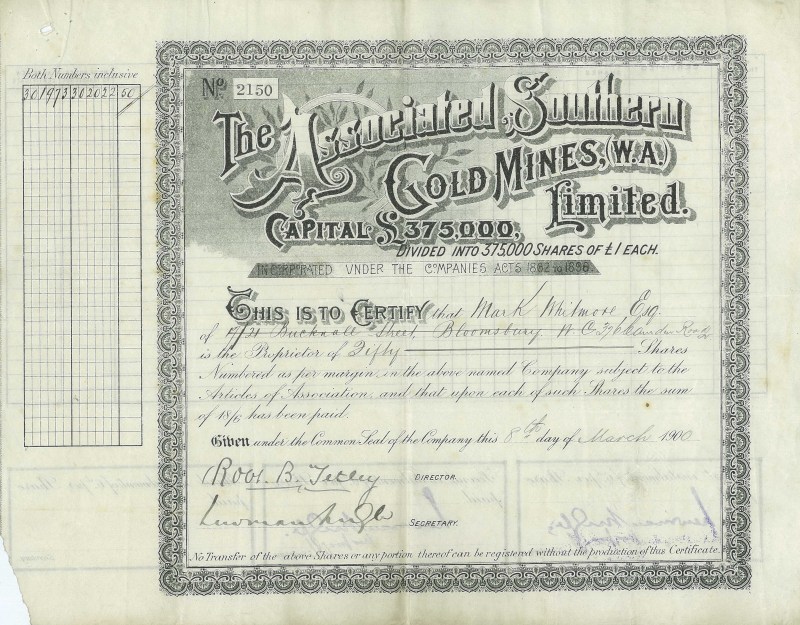 Both Numbers inclusive
301973 302022 50
No. 2150
The Associated Southern
Gold Mines, (W.A.)
Limited.
Capital £375,000,
Divided into 375,000 Shares of £1 each.
Incorporated under the Companies Acts 1862 to 1898.
This is to Certify that Mark Whitmore Esq.
of 17/21 Bucknall Street, Bloomsbury W C
is the Proprietor of Fifty Shares
Numbered as per margin, in the above named Company subject to the
Articles of Association, and that upon each of such Shares the sum
of 18/6 has been paid.
Given under the Common Seal of the Company this 8th day of March 1900
Robt. B. Tetley DIRECTOR.
SECRETARY.
No Transfer of the above Shares or any portion thereof can be registered without the production of this Certificate.